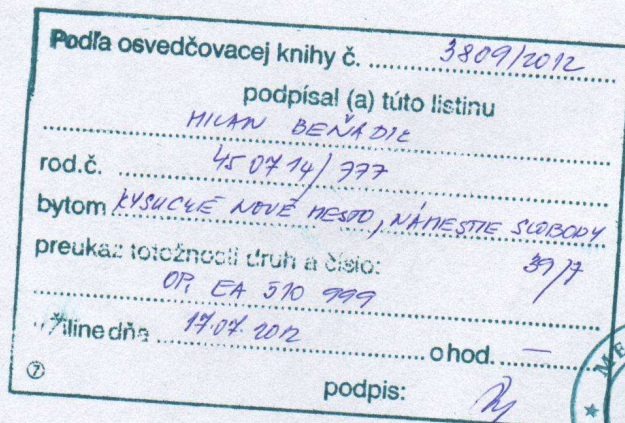 Podľa osvedčovacej knihy č. 3809/2012
podpísal (a) túto listinu
MILAN BEŇADIK
rod.č. 450714/777
bytom KYSUCKÉ NOVÉ MESTO, NÁMESTIE SLOBODY
preukaz totožnosti druh a číslo: 39/7
OP, EA 510 999
v Žiline dňa 17.07.2012 o hod. —
⑦ podpis:
ME